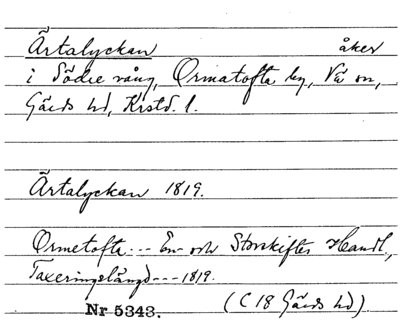 Ärtalyckan åker
i Södre vång, Ormatofta by, Vä sn,
Gärds hd, Krstd. l.
Ärtalyckan 1819.
Ormetofta --- En- och Storskiftes Handl.,
Taxeringslängd --- 1819.
Nr 5343. (C 18 Gärds hd)